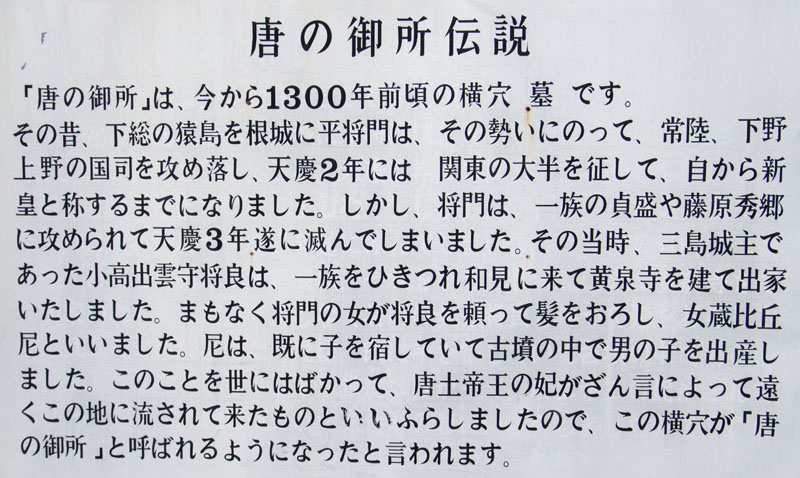 唐の御所伝説
「唐の御所」は、今から1300年前頃の横穴 墓 です。
その昔、下総の猿島を根城に平将門は、その勢いにのって、常陸、下野
上野の国司を攻め落し、天慶2年には 関東の大半を征して、自から新
皇と称するまでになりました。しかし、将門は、一族の貞盛や藤原秀郷
に攻められて天慶3年遂に滅んでしまいました。その当時、三島城主で
あった小高出雲守将良は、一族をひきつれ和見に来て黄泉寺を建て出家
いたしました。まもなく将門の女が将良を頼って髪をおろし、女蔵比丘
尼といいました。尼は、既に子を宿していて古墳の中で男の子を出産し
ました。このことを世にはばかって、唐土帝王の妃がざん言によって遠
くこの地に流されて来たものといいふらしましたので、この横穴が「唐
の御所」と呼ばれるようになったと言われます。